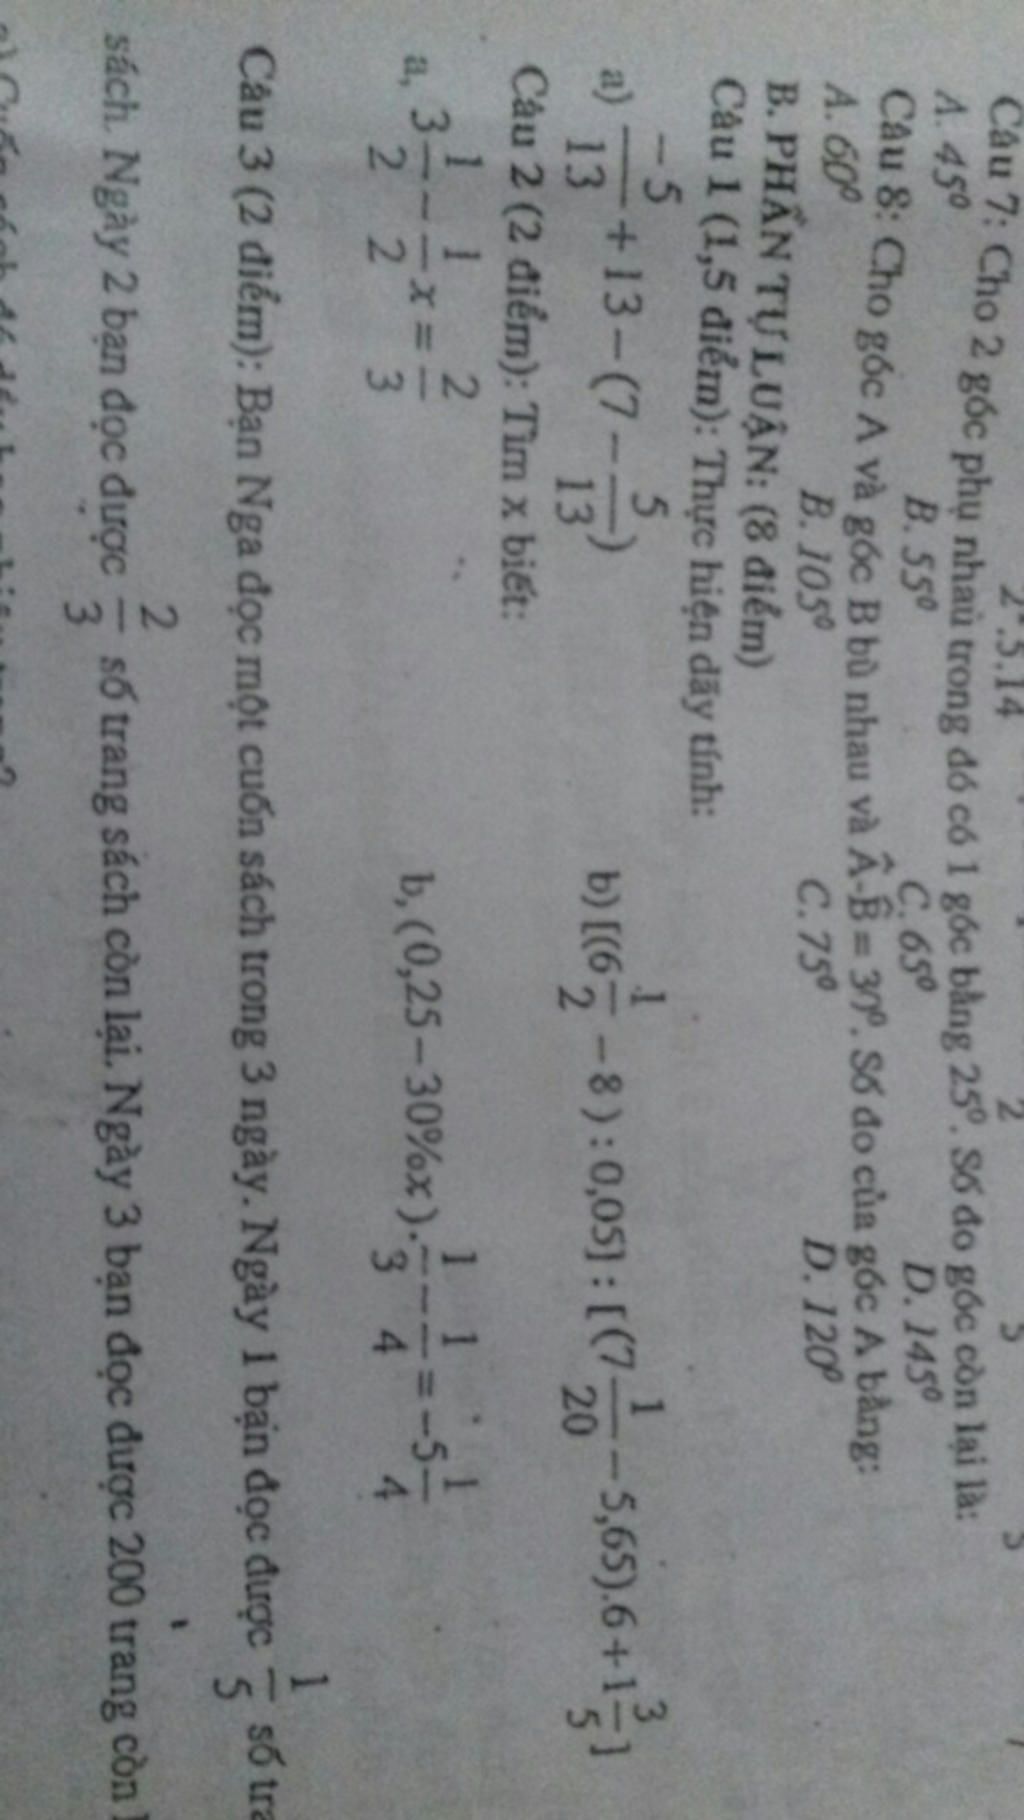 2².3.14
Câu 7: Cho 2 góc phụ nhau trong đó có 1 góc bằng 25⁰. Số đo góc còn lại là:
A. 45⁰ B. 55⁰ C. 65⁰ D. 145⁰
Câu 8: Cho góc A và góc B bù nhau và Â-B̂ = 30⁰. Số đo của góc A bằng:
A. 60⁰ B. 105⁰ C. 75⁰ D. 120⁰
B. PHẦN TỰ LUẬN: (8 điểm)
Câu 1 (1,5 điểm): Thực hiện dãy tính:
a) -5/13 + 13 – (7 – 5/13) b) [(6 1/2 – 8) : 0,05] : [(7 1/20 – 5,65).6 + 1 3/5]
Câu 2 (2 điểm): Tìm x biết:
a, 3 1/2 – 1/2 x = 2/3 b, (0,25 – 30%x). 1/3 – 1/4 = –5 1/4
Câu 3 (2 điểm): Bạn Nga đọc một cuốn sách trong 3 ngày. Ngày 1 bạn đọc được 1/5 số
sách. Ngày 2 bạn đọc được 2/3 số trang sách còn lại. Ngày 3 bạn đọc được 200 trang còn